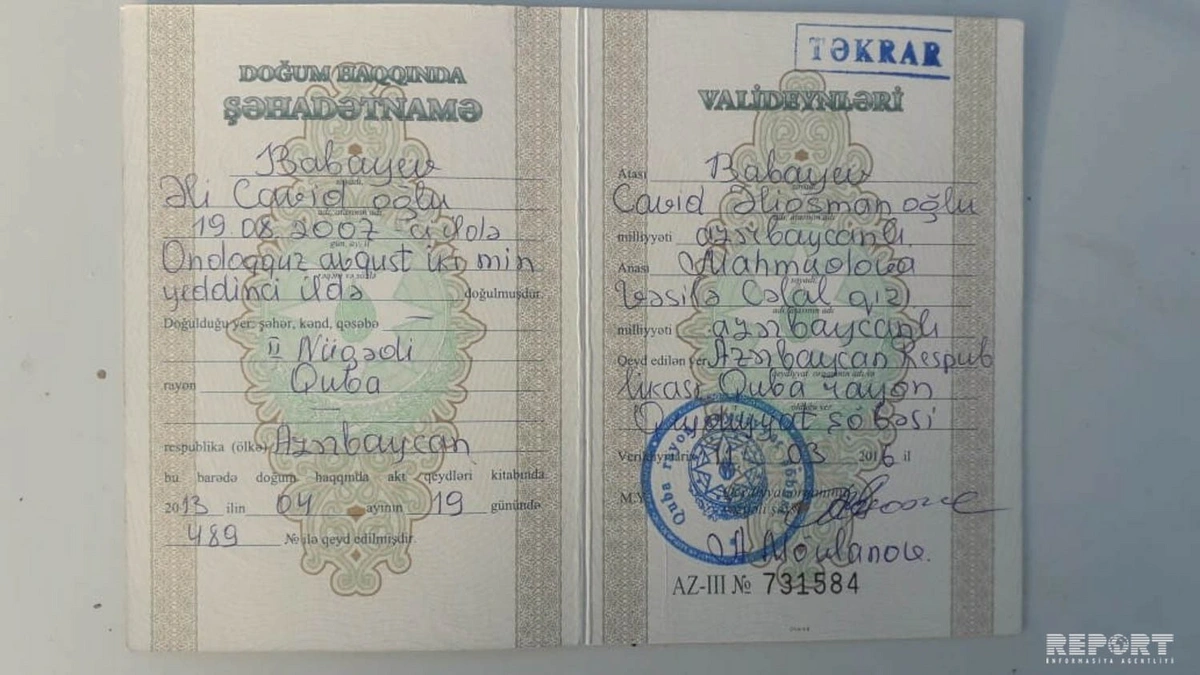 DOĞUM HAQQINDA
ŞƏHADƏTNAMƏ
Babayev
soyadı
Əli Cavid oğlu
adı, atasının adı
19.08.2007 -ci ildə
gün, ay, il
Ondoqquz avqust iki min
yeddinci ildə doğulmuşdur.
Doğulduğu yer: şəhər, kənd, qəsəbə —
II Nügədi
rayon Quba
—
respublika (ölkə) Azərbaycan
bu barədə doğum haqqında akt qeydləri kitabında
2013 ilin 04 ayının 19 gününda
489 № ilə qeyd edilmişdir.
TƏKRAR
VALİDEYNLƏRİ
Atası Babayev
soyadı
Cavid Əliosman oğlu
adı, atasının adı
milliyyəti azərbaycanlı
Anası Mahmudova
soyadı
Vəsilə Cəlal qızı
adı, atasının adı
milliyyəti azərbaycanlı
Qeyd edilən yer Azərbaycan Respub
likası Quba rayon
Qeydiyyat şöbəsi
Verilmə tarixi 11 03 2016 il
M.Y.
Quba rayon
AZ-III № 731584
REPORT
İNFORMASİYA AGENTLİYİ